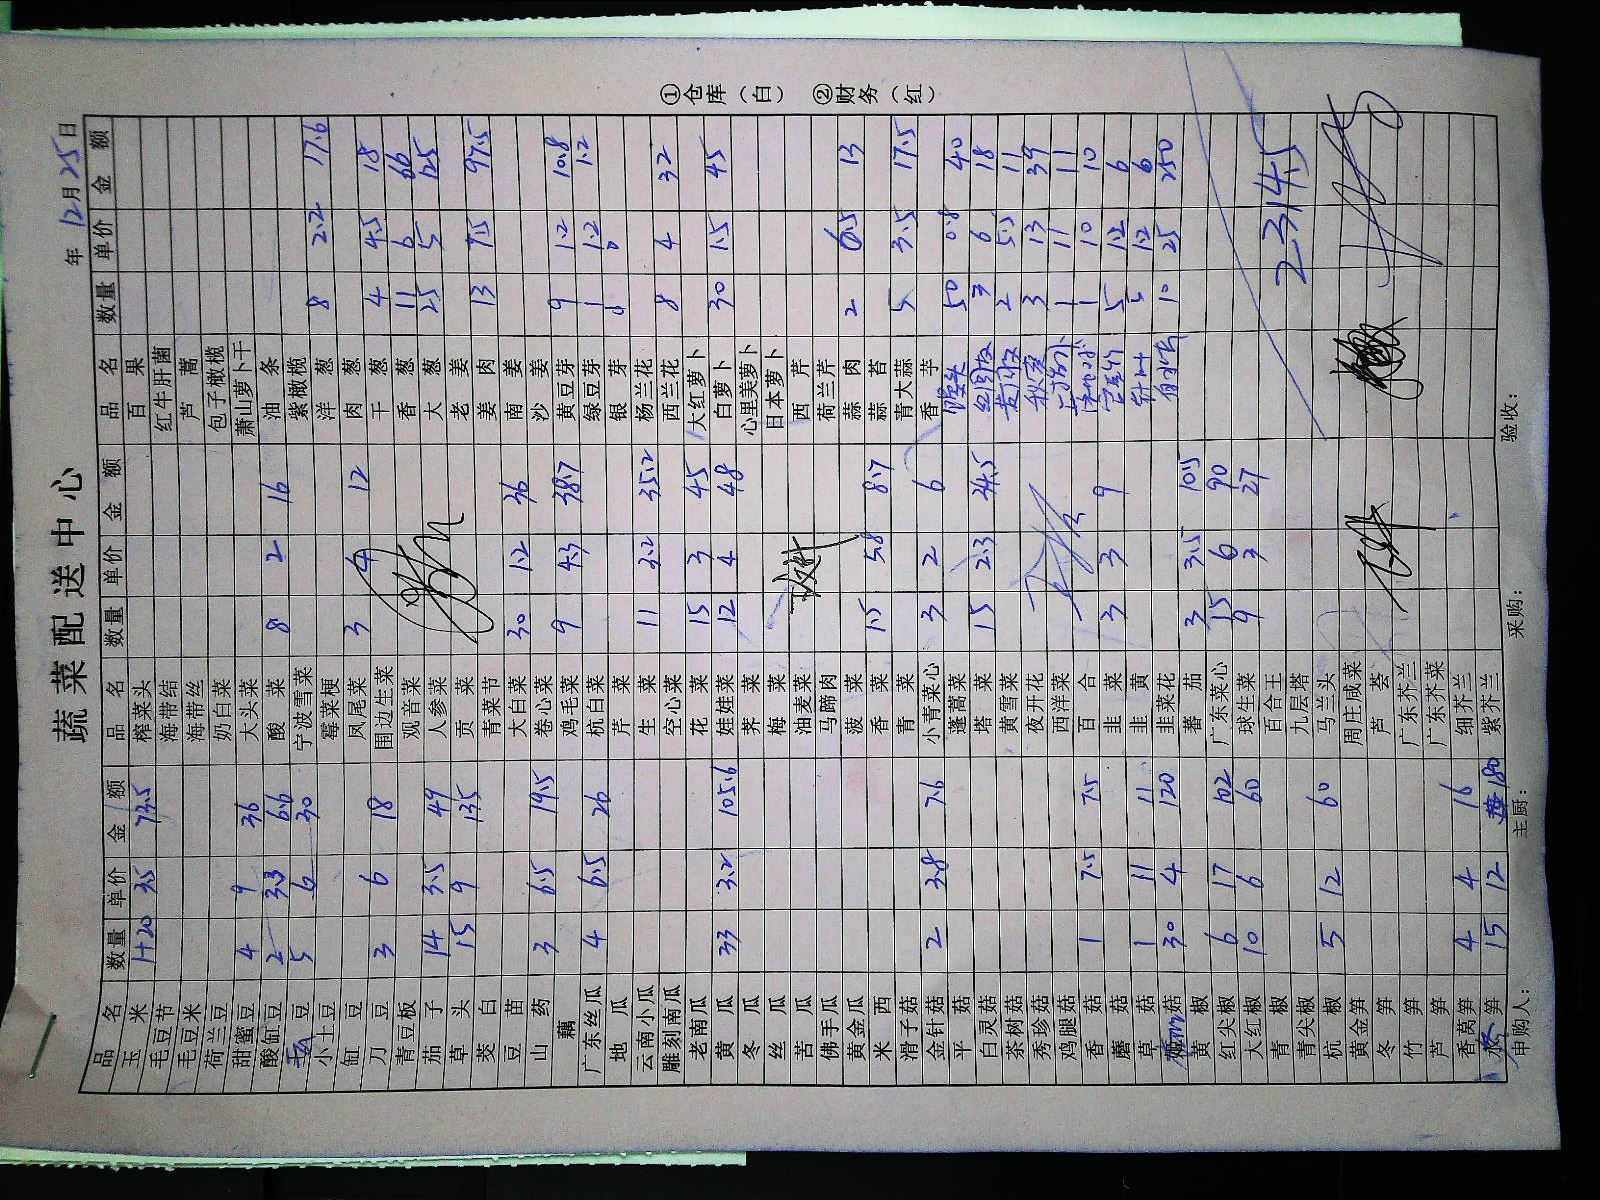 蔬菜配送中心
年 12月25日
品名 数量 单价 金额 品名 数量 单价 金额 品名 数量 单价 金额
玉米 1+20 3.5 73.5 榨菜头 百果
毛豆节 海带结 红牛肝菌
毛豆米 海带丝 芦蒿
荷兰豆 奶白菜 包子橄榄
甜蜜豆 4 9 36 大头菜 萧山萝卜干
酸缸豆 2 3.3 6.6 酸菜 8 2 16 油条
豆 5 6 30 宁波雪菜 紫橄榄
小土豆 霉菜梗 洋葱 8 2.2 17.6
缸豆 凤尾菜 3 4 12 肉葱
刀豆 3 6 18 围边生菜 干葱 4 4.5 18
青豆板 观音菜 香葱 11 6 66
茄子 14 3.5 49 人参菜 大葱 25 5 125
草头 15 9 135 贡菜 老姜
茭白 青菜节 姜肉 13 7.5 97.5
豆苗 大白菜 30 1.2 36 南姜
山药 3 6.5 19.5 卷心菜 沙姜
藕 鸡毛菜 9 4.3 38.7 黄豆芽 9 1.2 10.8
广东丝瓜 4 6.5 26 杭白菜 绿豆芽 1 1.2 1.2
地瓜 芹菜 银芽
云南小瓜 生菜 11 3.2 35.2 杨兰花
雕刻南瓜 空心菜 西兰花 8 4 32
老南瓜 花菜 15 3 45 大红萝卜
黄瓜 33 3.2 105.6 娃娃菜 12 4 48 白萝卜 30 1.5 45
冬瓜 荠菜 心里美萝卜
丝瓜 梅菜 日本萝卜
苦瓜 油麦菜 西芹
佛手瓜 马蹄肉 荷兰芹
黄金瓜 菠菜 蒜肉 2 6.5 13
米西 香菜 1.5 5.8 8.7 蒜苔
滑子菇 青菜 青大蒜 5 3.5 17.5
金针菇 2 3.8 7.6 小青菜心 3 2 6 香芋
平菇 蓬蒿菜 馒头 50 0.8 40
白灵菇 塔菜 15 2.3 34.5 3 6 18
茶树菇 黄雪菜 2 5.5 11
秀珍菇 夜开花 秋葵 3 13 39
鸡腿菇 西洋菜 1 11 11
香菇 1 7.5 7.5 百合 1 10 10
蘑菇 韭菜 3 3 9 5 1.2 6
草菇 1 11 11 韭黄 5 1.2 6
菇 30 4 120 韭菜花 10 25 250
黄椒 蕃茄 3 3.5 10.5
红尖椒 6 17 102 广东菜心 15 6 90
大红椒 10 6 60 球生菜 9 3 27
青椒 百合王
青尖椒 九层塔 2314.5
杭椒 5 12 60 马兰头
黄金笋 周庄咸菜
冬笋 芦荟
竹笋 广东芥兰
芦笋 广东芥菜
香莴笋 4 4 16 细芥兰
笋 15 12 180 紫芥兰
申购人： 主厨： 采购： 验收：
①仓库（白） ②财务（红）